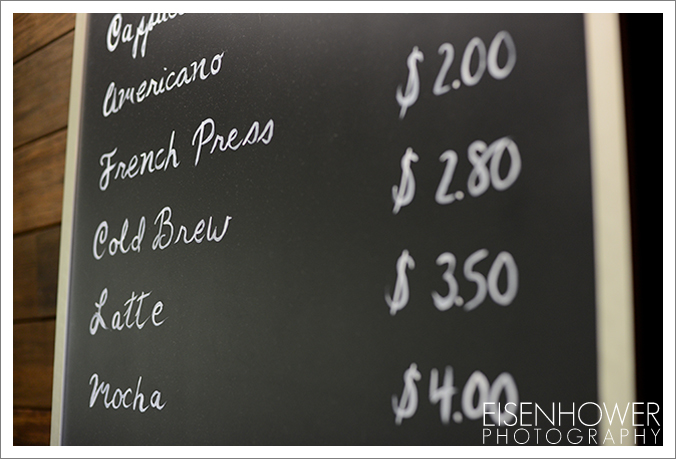 Cappuc
Americano
French Press $ 2.00
Cold Brew $ 2.80
Latte $ 3.50
Mocha $ 4.00
EISENHOWER
PHOTOGRAPHY